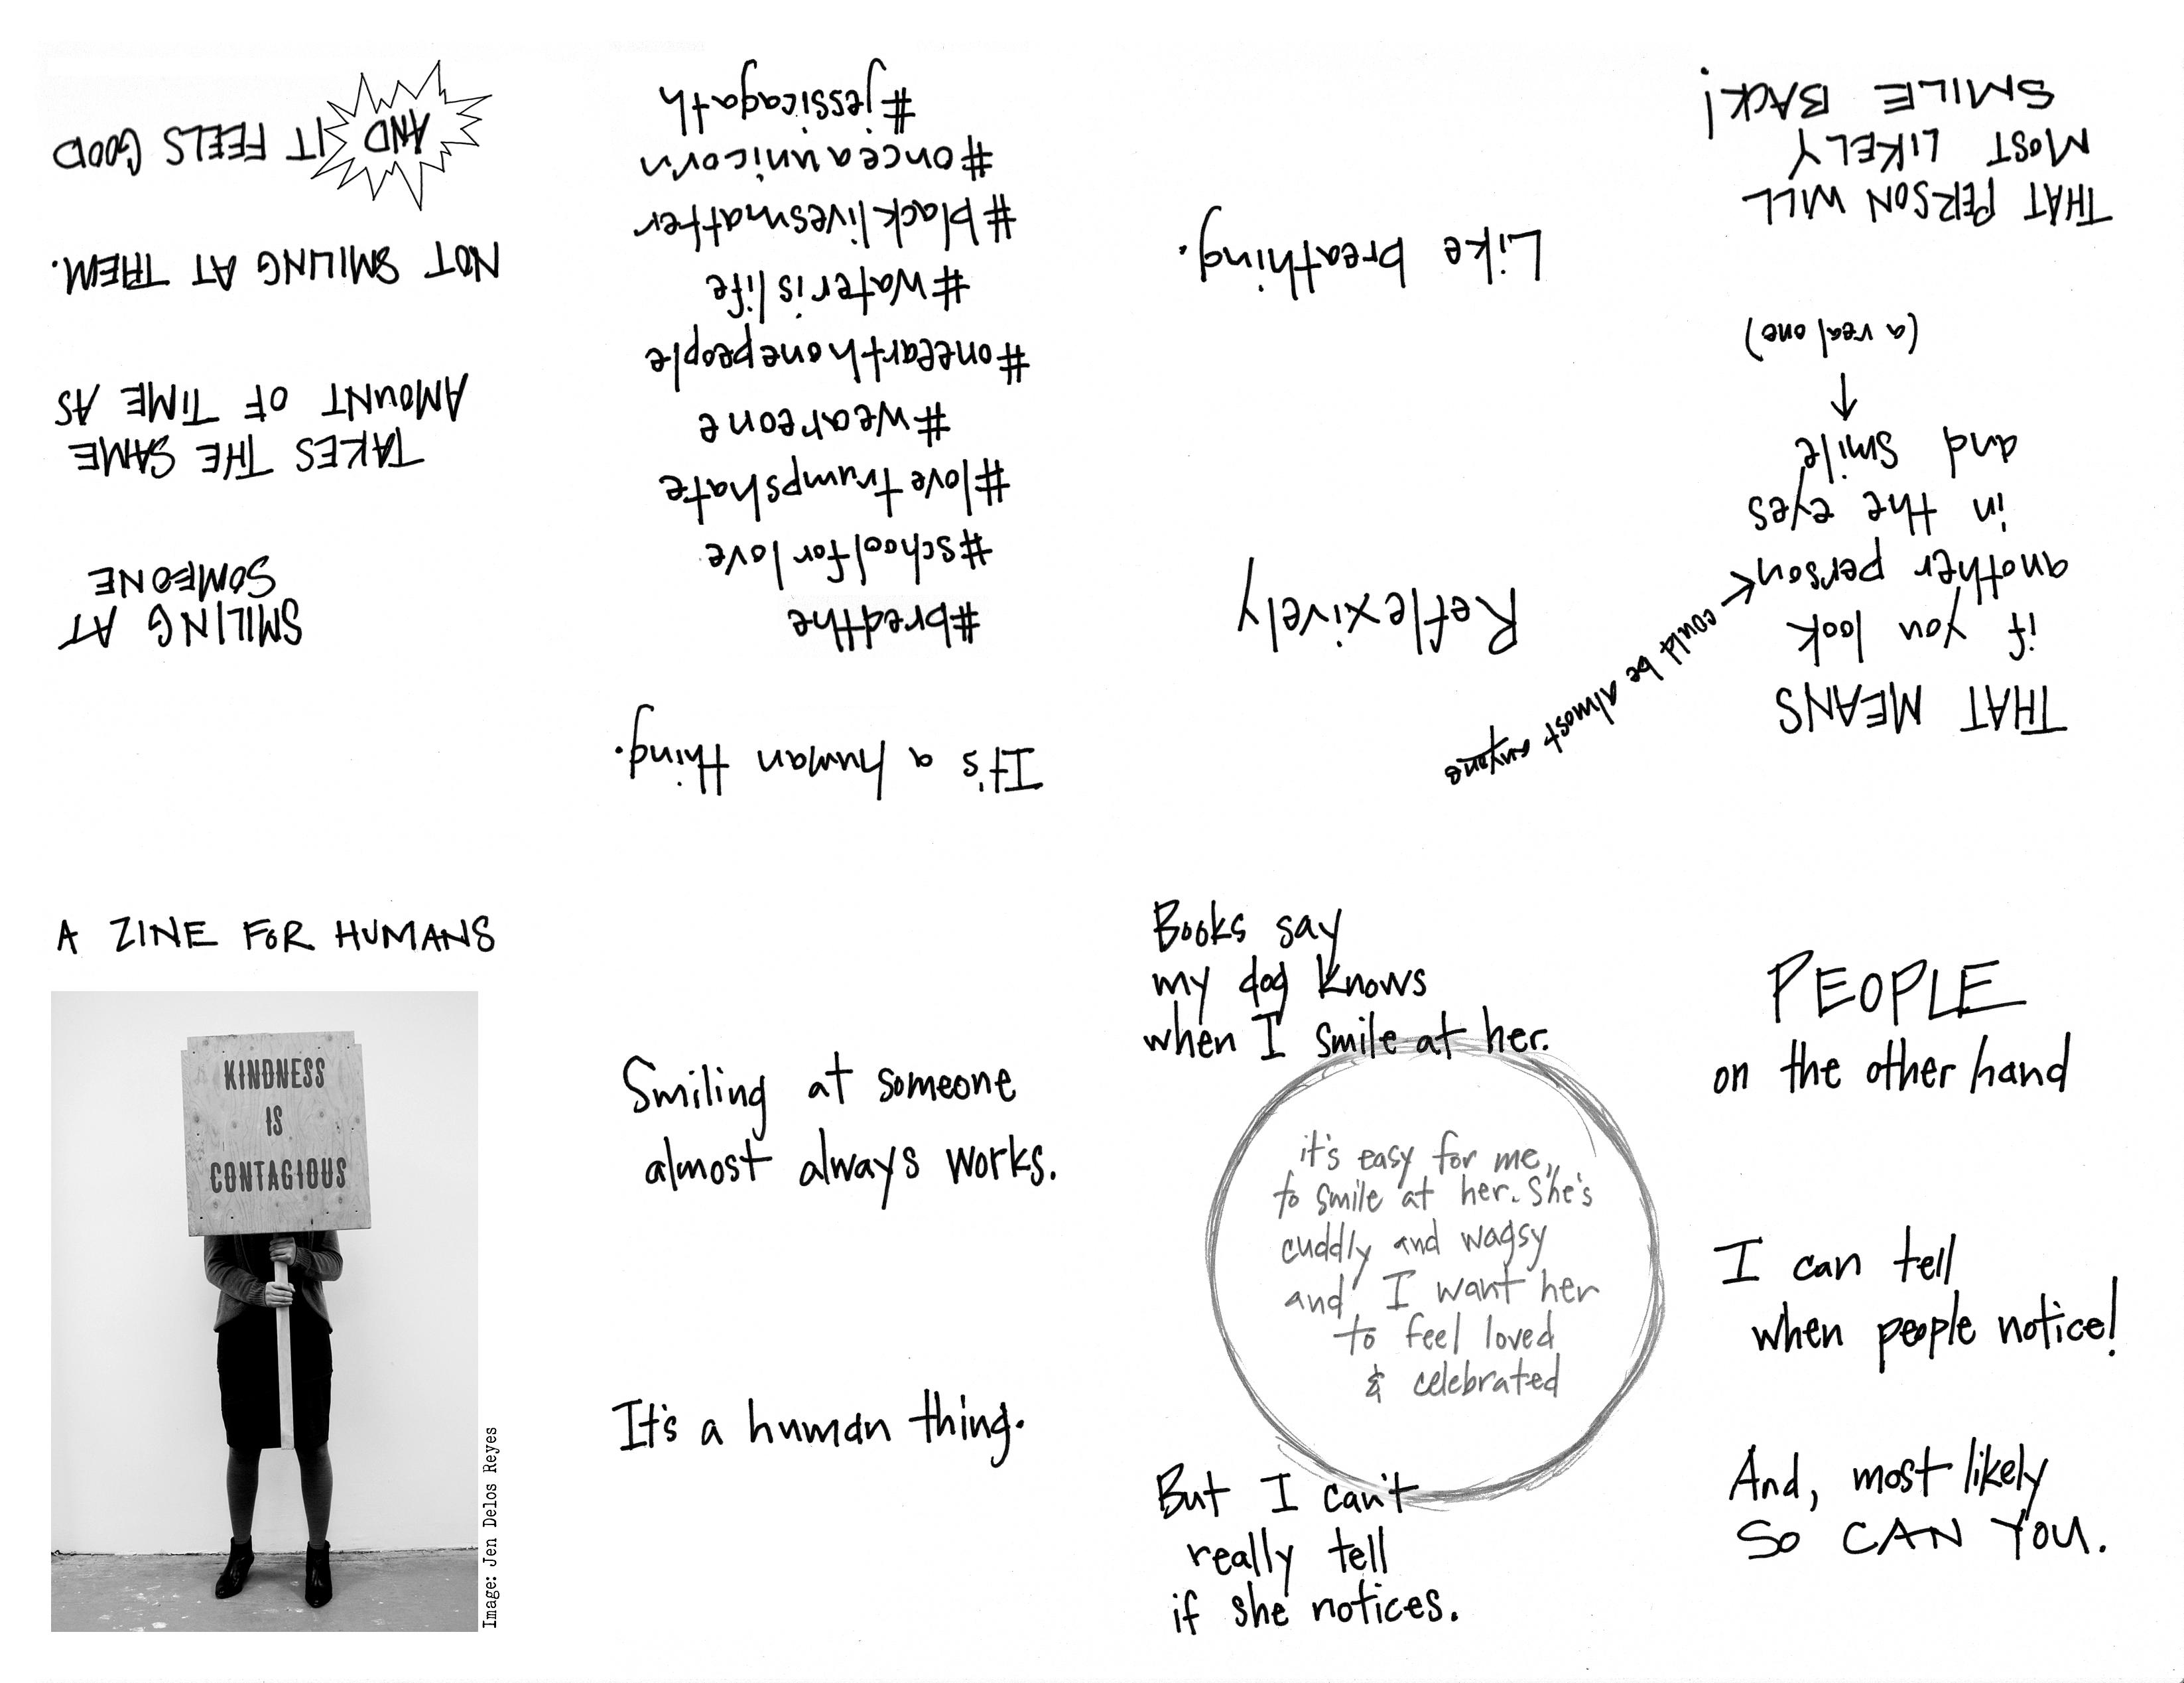 A ZINE FOR HUMANS
KINDNESS
IS
CONTAGIOUS
Image: Jen Delos Reyes
Smiling at someone
almost always works.
It's a human thing.
Books say
my dog knows
when I smile at her.
it's easy for me
to smile at her. She's
cuddly and wagsy
and I want her
to feel loved
& celebrated
But I can't
really tell
if she notices.
PEOPLE
on the other hand
I can tell
when people notice!
And, most likely
SO CAN YOU.
THAT MEANS
if you look
another person
could be almost anyone
in the eyes
and smile
(a real one)
THAT PERSON WILL
MOST LIKELY
SMILE BACK!
Reflexively
Like breathing.
It's a human thing.
#breathe
#schoolforlove
#lovetrumpshate
#weareone
#oneearthonepeople
#waterislife
#blacklivesmatter
#onceaunicorn
#jessicagath
SMILING AT
SOMEONE
TAKES THE SAME
AMOUNT OF TIME AS
NOT SMILING AT THEM.
AND IT FEELS GOOD